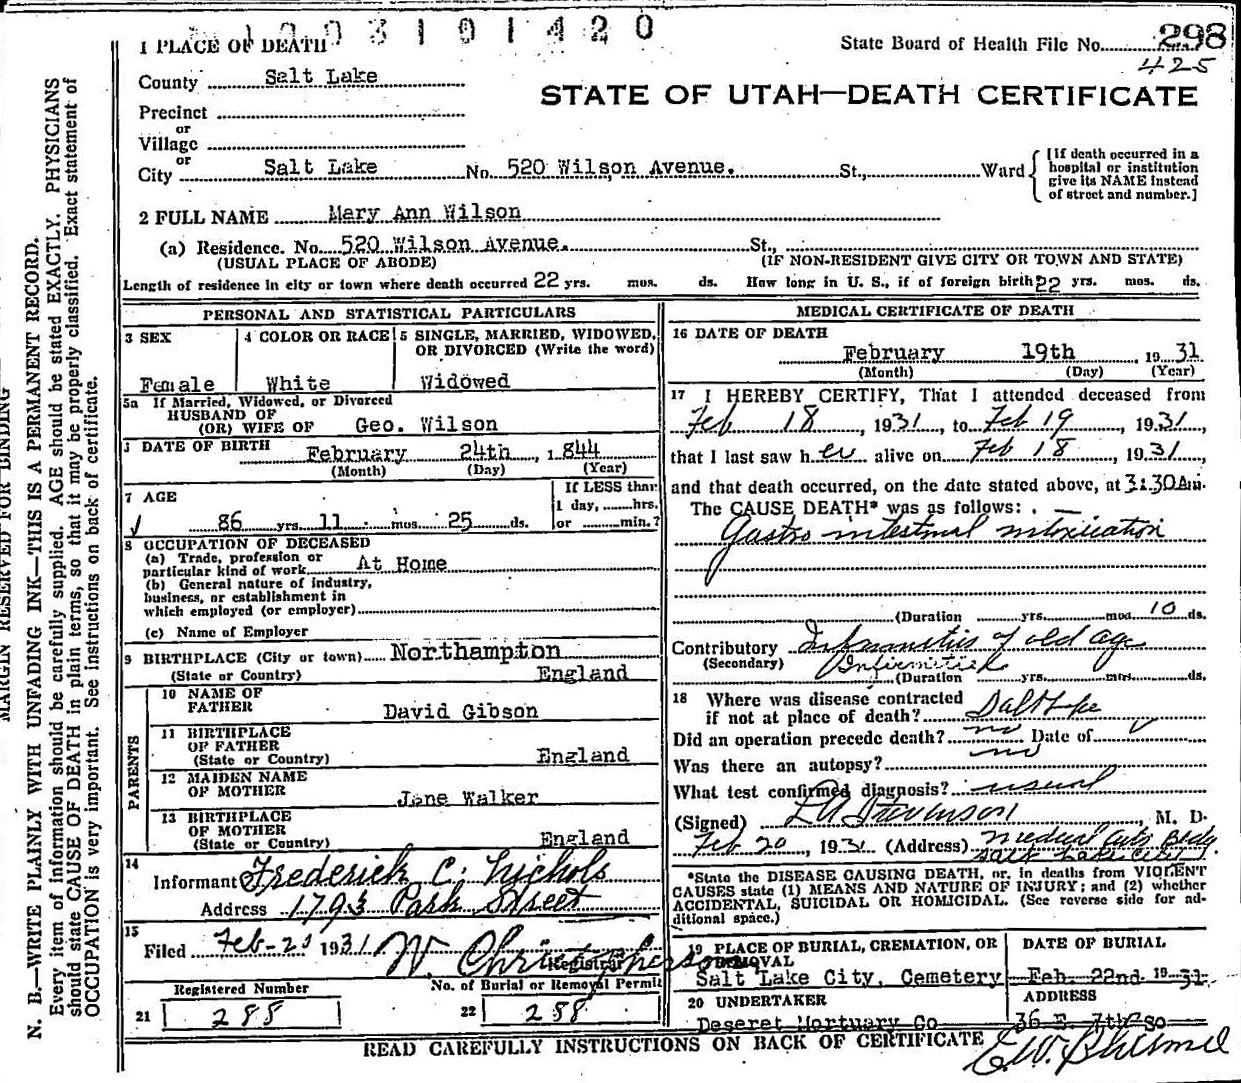 1003101420
1 PLACE OF DEATH
State Board of Health File No. 298
425
County Salt Lake
STATE OF UTAH—DEATH CERTIFICATE
Precinct
or
Village
or
City Salt Lake No. 520 Wilson Avenue. St., Ward
[If death occurred in a
hospital or institution
give its NAME instead
of street and number.]
2 FULL NAME Mary Ann Wilson
(a) Residence. No. 520 Wilson Avenue. St.,
(USUAL PLACE OF ABODE) (IF NON-RESIDENT GIVE CITY OR TOWN AND STATE)
Length of residence in city or town where death occurred 22 yrs. mos. ds. How long in U. S., if of foreign birth 22 yrs. mos. ds.
PERSONAL AND STATISTICAL PARTICULARS
3 SEX
Female
4 COLOR OR RACE
White
5 SINGLE, MARRIED, WIDOWED,
OR DIVORCED (Write the word)
Widowed
5a If Married, Widowed, or Divorced
HUSBAND OF
(OR) WIFE OF Geo. Wilson
DATE OF BIRTH February 24th, 1844
(Month) (Day) (Year)
7 AGE
86 yrs. 11 mos. 25 ds.
If LESS than
1 day, ......hrs.
or ......min.?
8 OCCUPATION OF DECEASED
(a) Trade, profession or
particular kind of work At Home
(b) General nature of industry,
business, or establishment in
which employed (or employer)
(c) Name of Employer
9 BIRTHPLACE (City or town) Northampton
(State or Country) England
PARENTS
10 NAME OF
FATHER David Gibson
11 BIRTHPLACE
OF FATHER
(State or Country) England
12 MAIDEN NAME
OF MOTHER Jane Walker
13 BIRTHPLACE
OF MOTHER
(State or Country) England
14
Informant Frederick C. Nichols
Address 1793 Park Street
15
Filed Feb-20 1931 W. Christopherson
Registrar
Registered Number
21 288
No. of Burial or Removal Permit
22 288
MEDICAL CERTIFICATE OF DEATH
16 DATE OF DEATH
February 19th, 1931
(Month) (Day) (Year)
17 I HEREBY CERTIFY, That I attended deceased from
Feb 18, 1931, to Feb 19, 1931,
that I last saw her alive on Feb 18, 1931,
and that death occurred, on the date stated above, at 3:30 Am.
The CAUSE DEATH* was as follows:
Gastro intestinal intoxication
(Duration yrs. mos. 10 ds.
Contributory Infirmities of old age
(Secondary) Infirmities
(Duration yrs. mos. ds.
18 Where was disease contracted
if not at place of death? Salt Lake
Did an operation precede death? no Date of
Was there an autopsy? no
What test confirmed diagnosis? usual
(Signed) L A Stevenson, M. D.
Feb 20, 1931 (Address) Medical Arts Bldg.
Salt Lake City
*State the DISEASE CAUSING DEATH, or, in deaths from VIOLENT
CAUSES state (1) MEANS AND NATURE OF INJURY; and (2) whether
ACCIDENTAL, SUICIDAL OR HOMICIDAL. (See reverse side for ad-
ditional space.)
19 PLACE OF BURIAL, CREMATION, OR
REMOVAL
Salt Lake City, Cemetery
DATE OF BURIAL
Feb. 22nd 1931
20 UNDERTAKER
Deseret Mortuary Co
ADDRESS
36 E. 7th So
READ CAREFULLY INSTRUCTIONS ON BACK OF CERTIFICATE
MARGIN RESERVED FOR BINDING
N. B.—WRITE PLAINLY WITH UNFADING INK—THIS IS A PERMANENT RECORD.
Every item of information should be carefully supplied. AGE should be stated EXACTLY. PHYSICIANS
should state CAUSE OF DEATH in plain terms, so that it may be properly classified. Exact statement of
OCCUPATION is very important. See instructions on back of certificate.